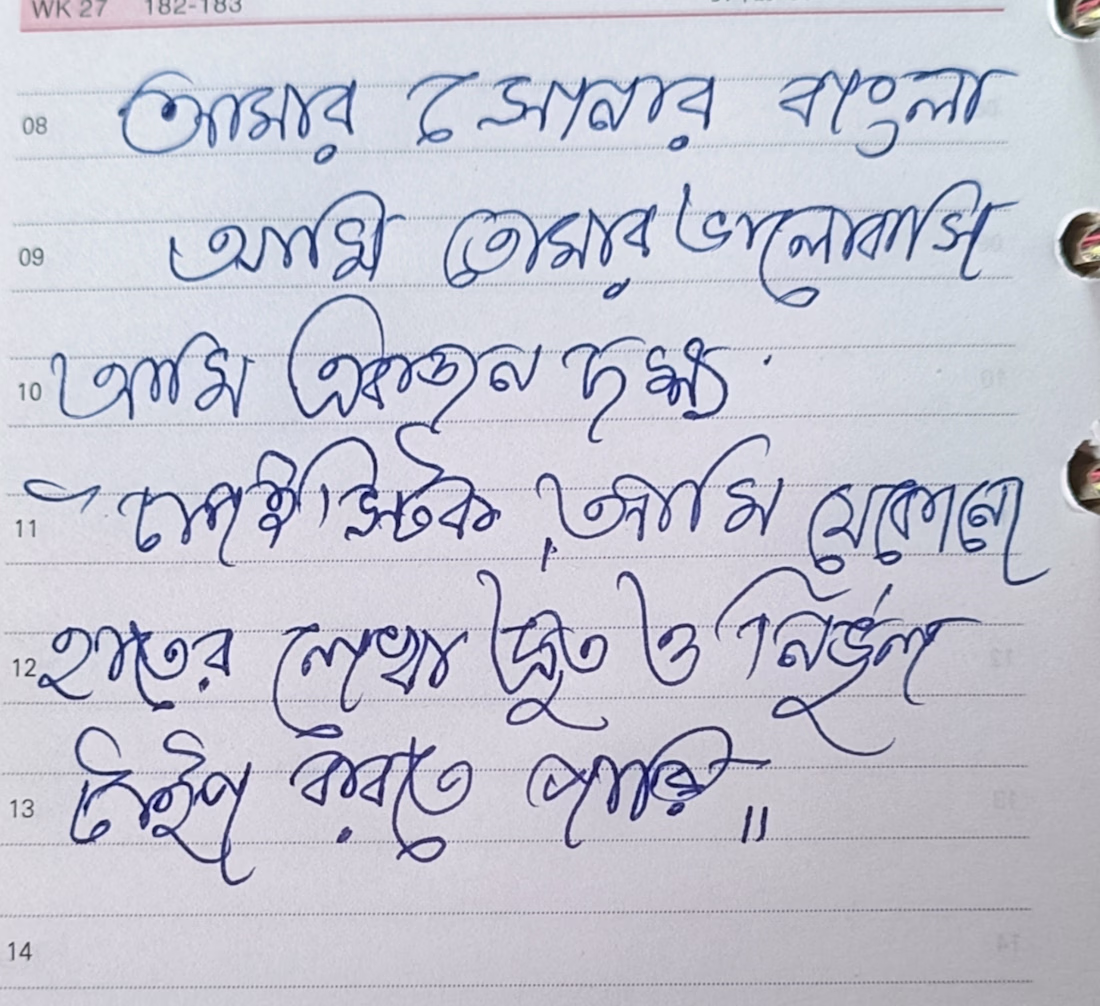 WK 27 182-183
08 আমার সোনার বাংলা
09 আমি তোমার ভালোবাসি
10 আমি একজন দক্ষ
11 টাইপিস্টক, আমি যেকোনো
12 হাতের লেখা দ্রুত ও নির্ভুল
13 টাইপ করতে পারি॥
14